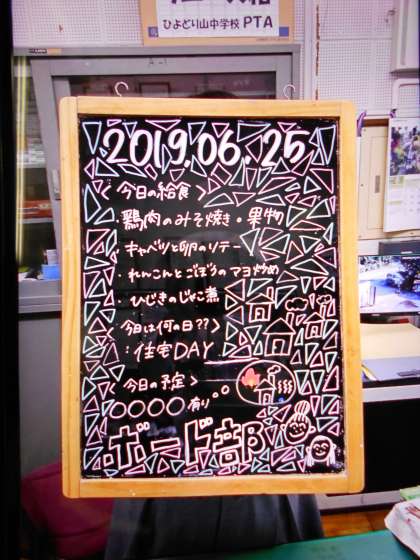 ひよどり山中学校 PTA
2019.06.25
<今日の給食>
・鶏肉のみそ焼き・果物
・キャベツと卵のソテー
・れんこんとごぼうのマヨ炒め
・ひじきのじゃこ煮
<今日は何の日??>
:住宅DAY
<今日の予定>
〇〇〇〇有り
ボード部